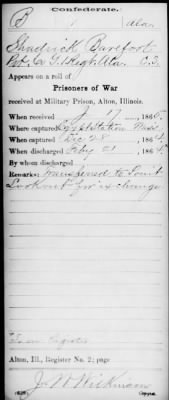 Confederate.
B 1 Ala.
Shadrick Barefoot
Pvt. Co. G. 1 Regt. Ala. C.S.
Appears on a roll of
Prisoners of War
received at Military Prison, Alton, Illinois.
When received J 17, 1865.
Where captured Egypt Station Miss
When captured Dec 28, 1864
When discharged Feby 21, 186
By whom discharged
Remarks: Transferred to Point
Lookout for exchange
Alton, Ill., Register No. 2; page
J. W. Wilkinson
Copyist.